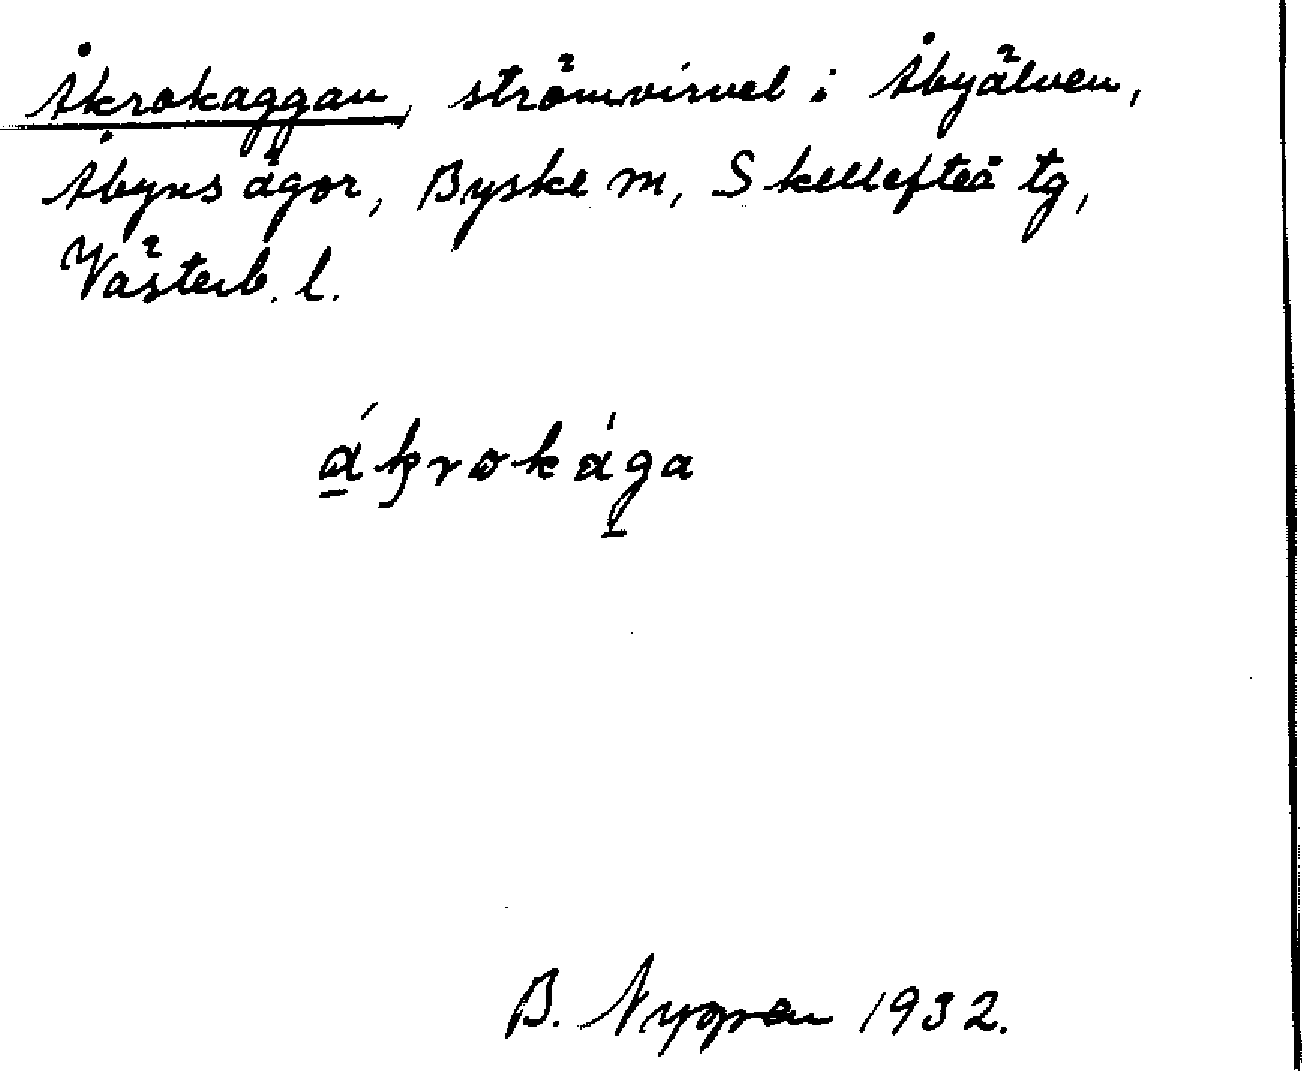 Åkrokaggan, strömvirvel i Åbyälven,
Åbyns ägor, Byske m, Skellefteå tg,
Västerb. l.
åkrokága
B. Nygren 1932.